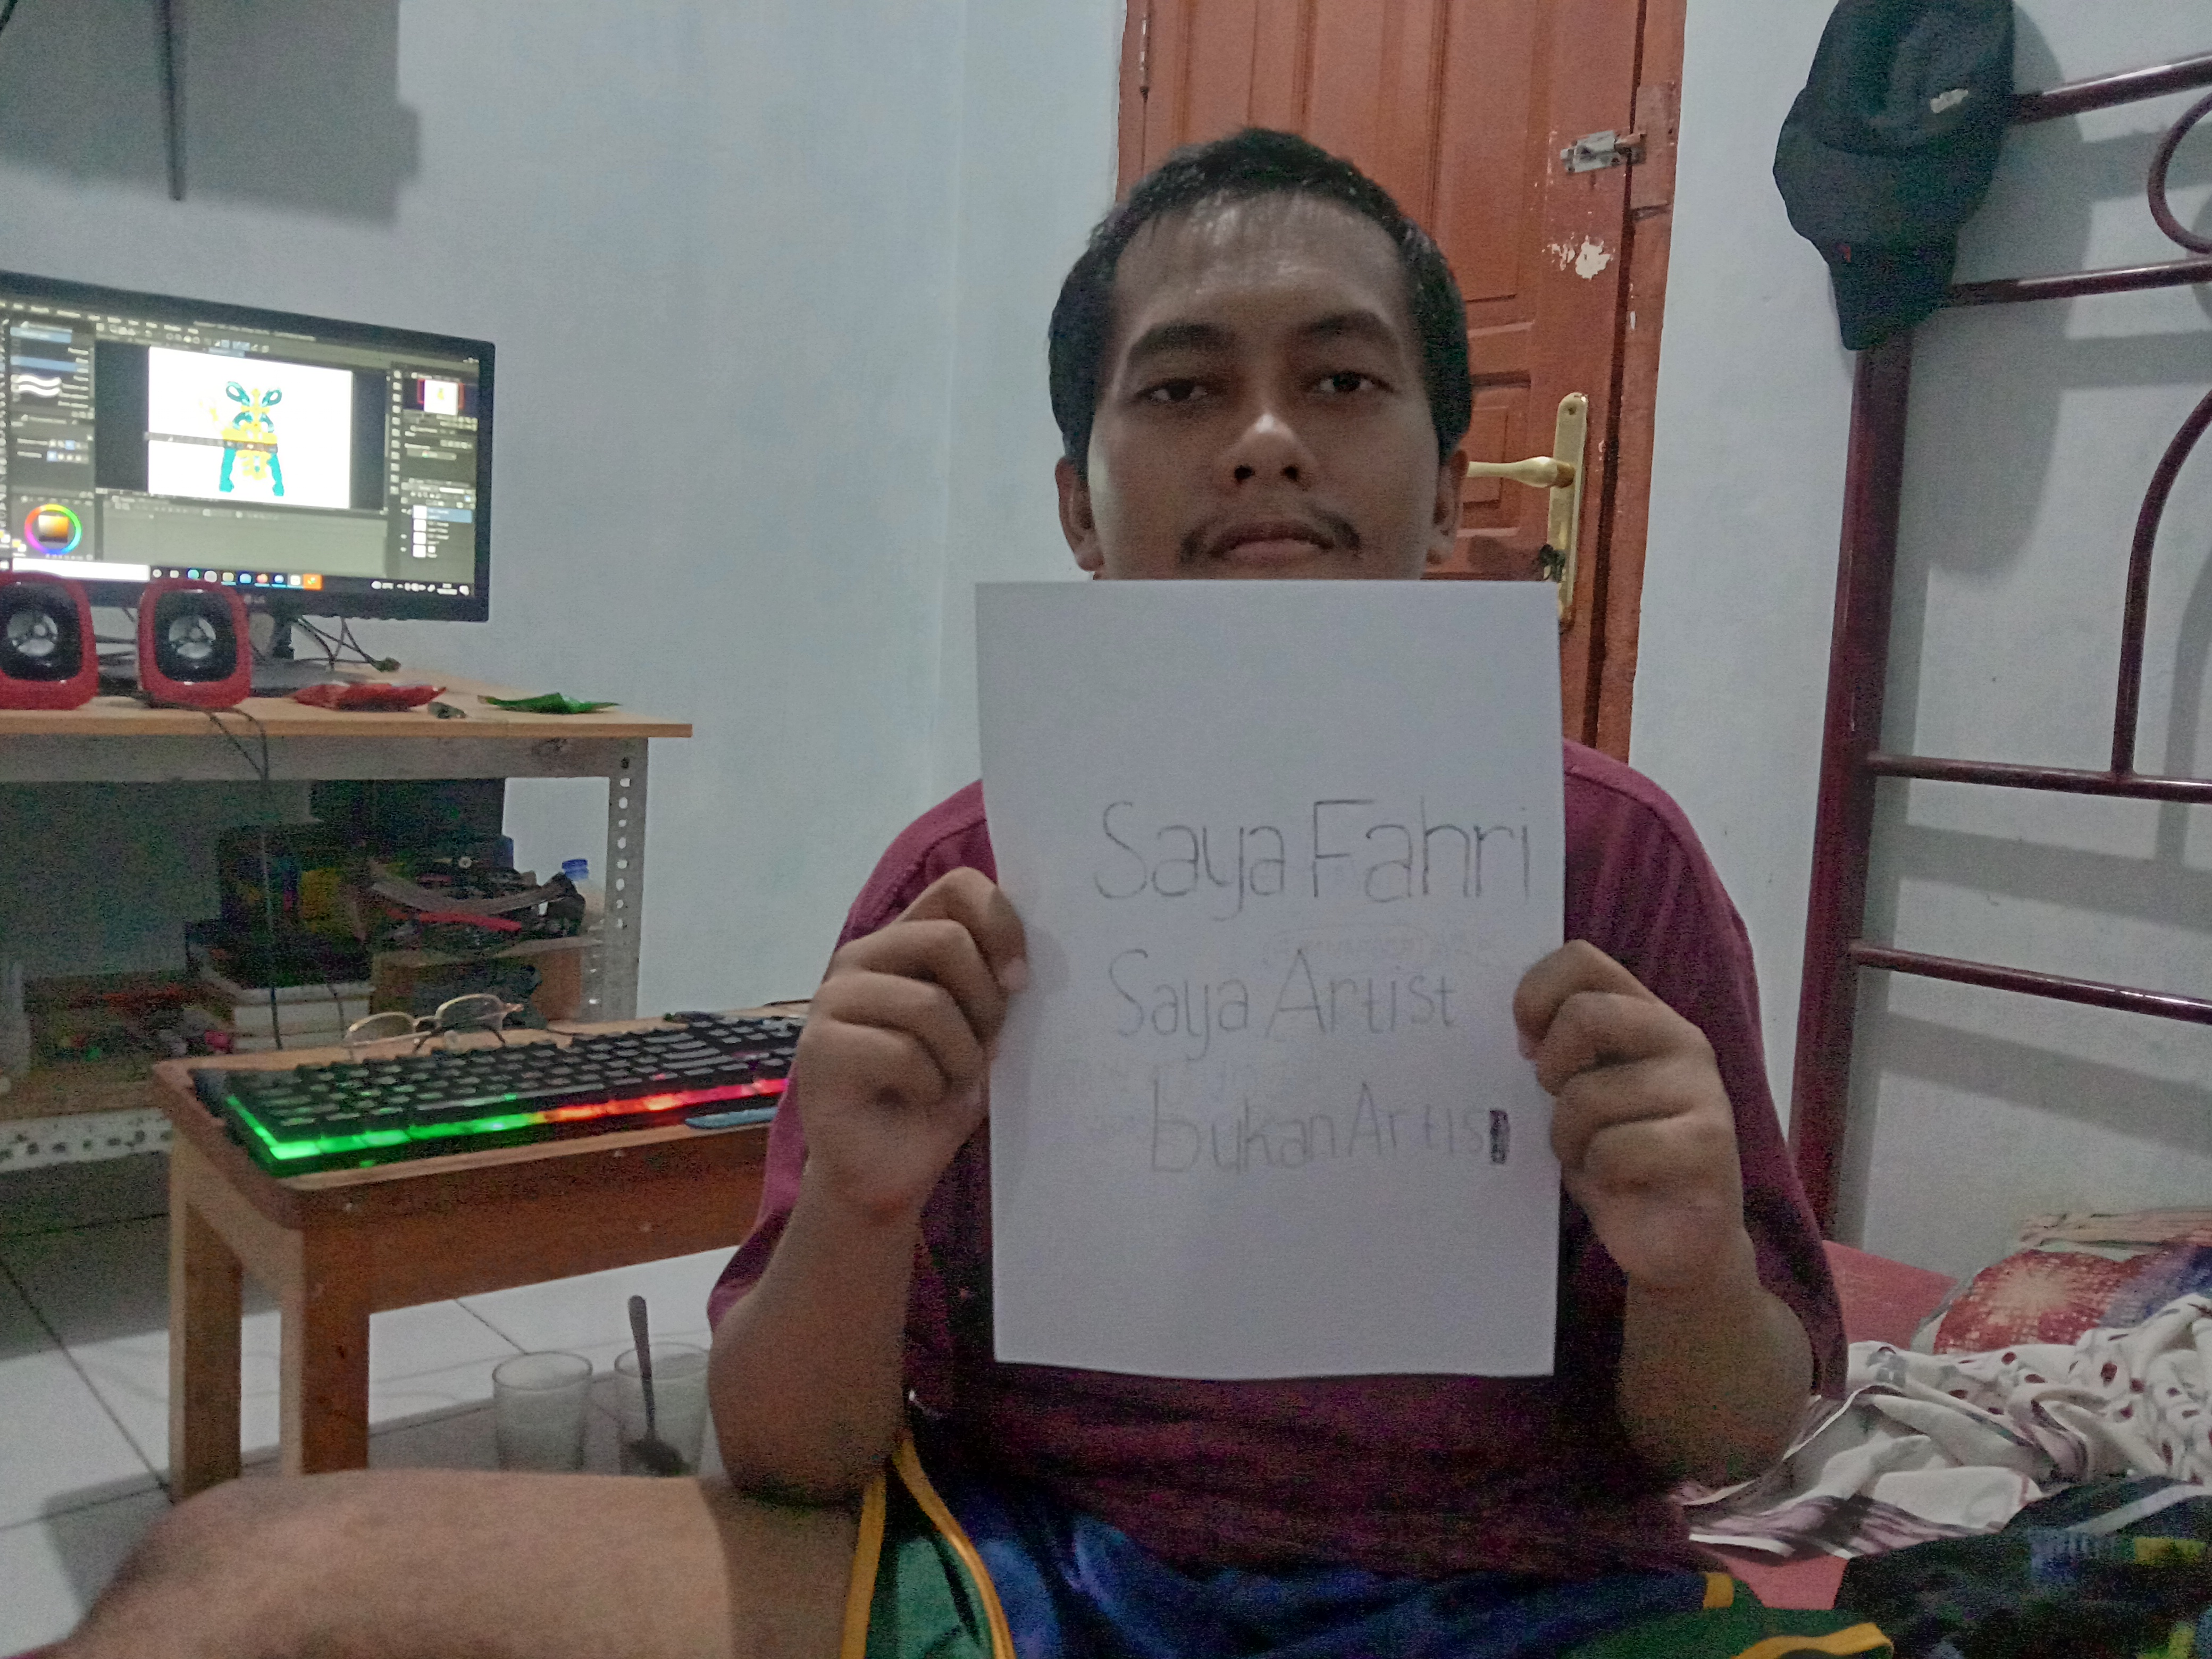 Saya Fahri
Saya Artist
bukan Artis